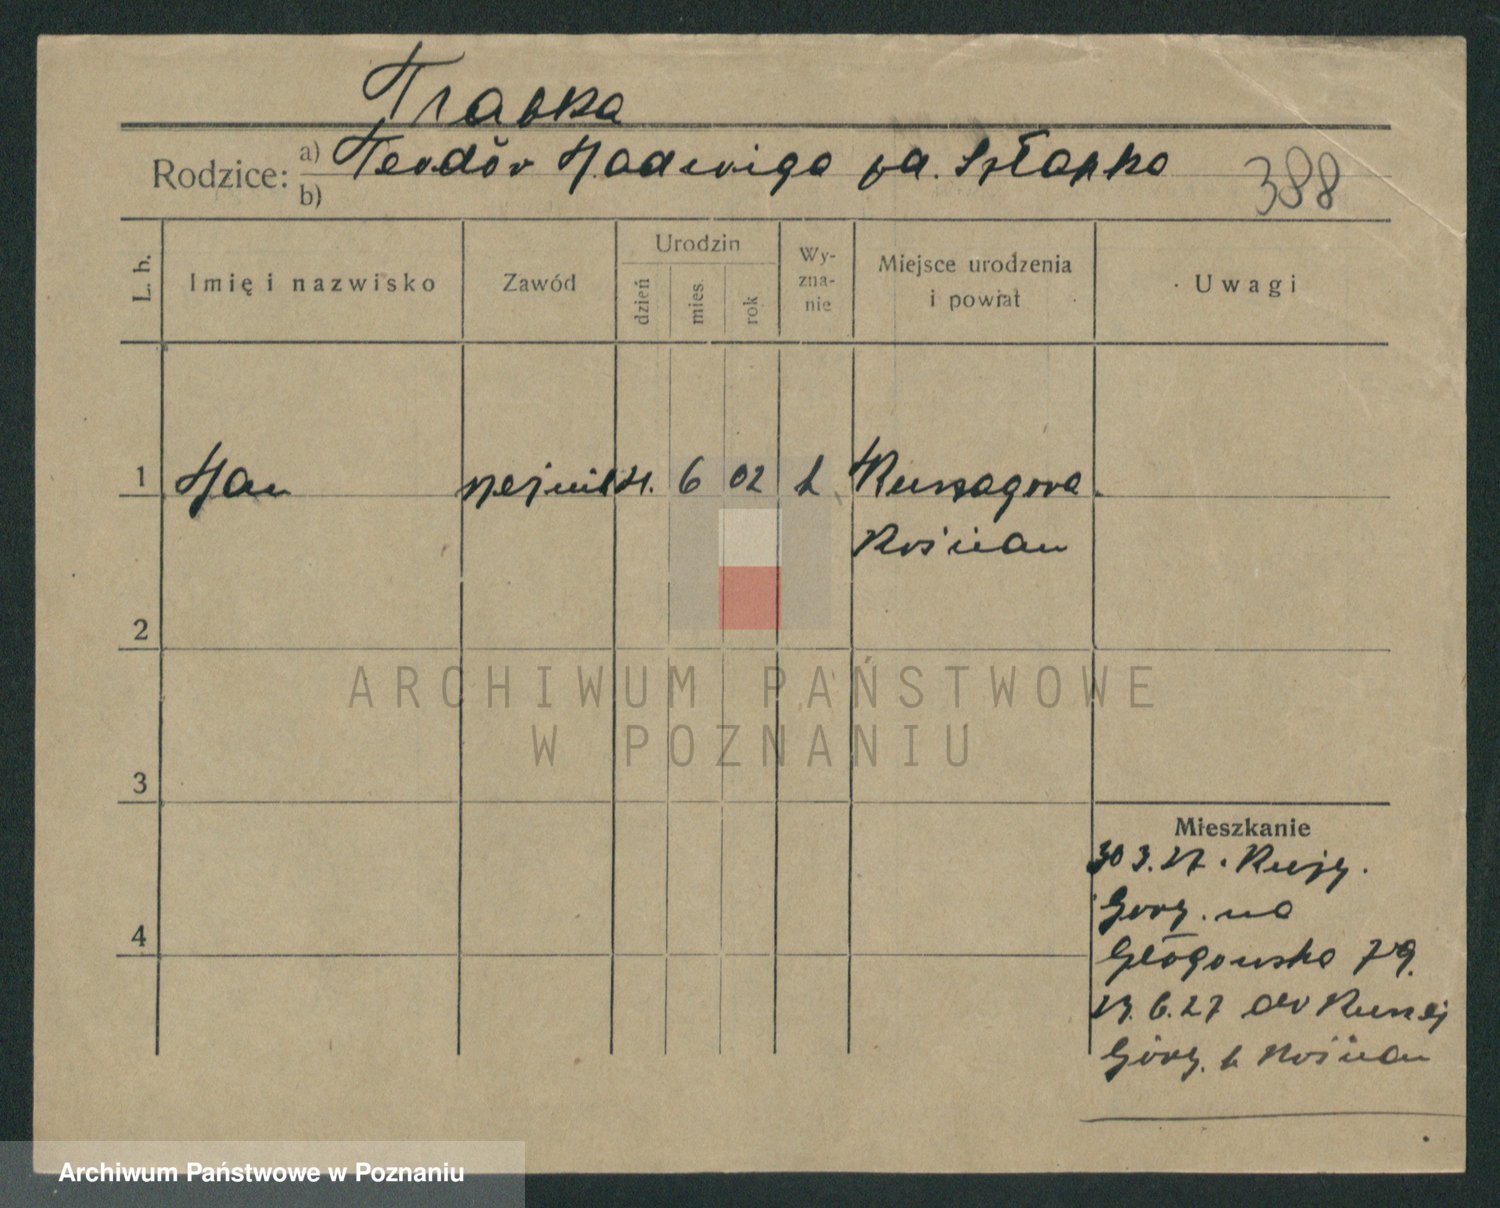 Trabka
Rodzice: a) Teodór Hadwiga
b)
388
L. b.
Imię i nazwisko
Zawód
Urodzin
dzień
mies.
rok
Wy-
zna-
nie
Miejsce urodzenia
i powiat
Uwagi
1 Jan 6 02 k
Kościan
2
3
4
Mieszkanie
30 3. 27.
Góry. na
Głógowska 79.
6. 27 do
Góry. k Kościan
ARCHIWUM PAŃSTWOWE
W POZNANIU
Archiwum Państwowe w Poznaniu